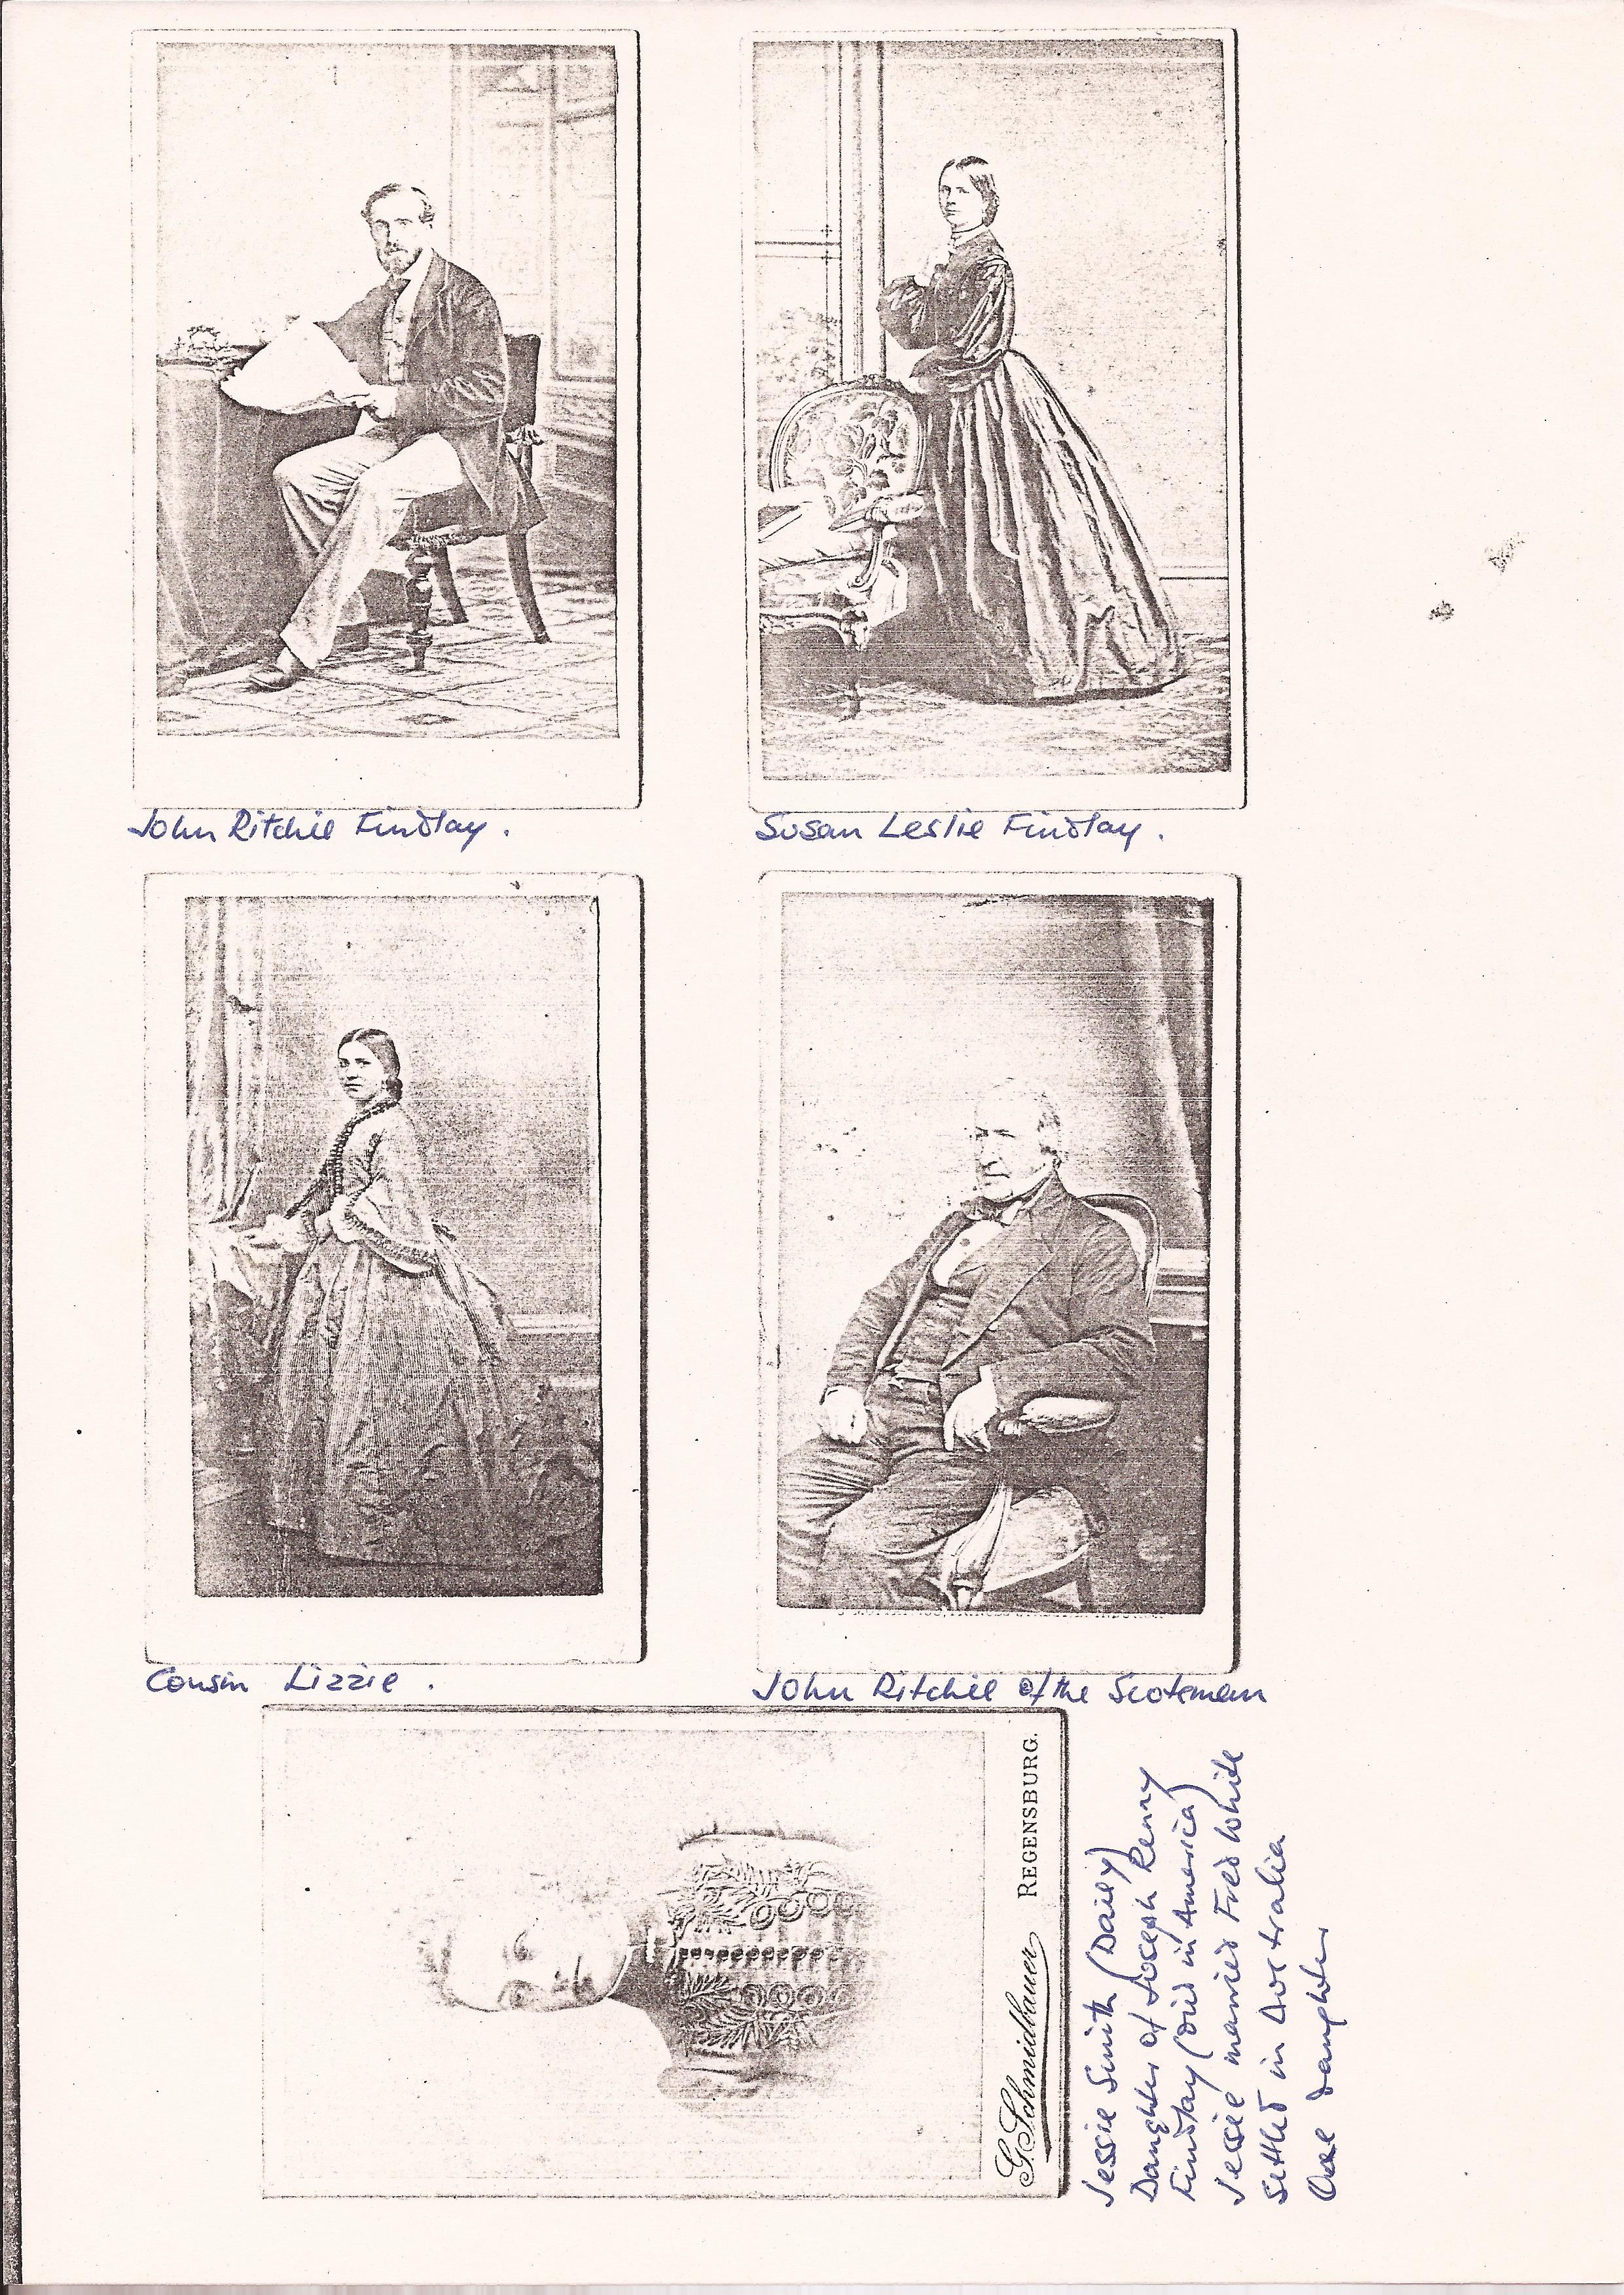 John Ritchie Findlay.
Susan Leslie Findlay.
Cousin Lizzie.
John Ritchie of the Scotsman
G. Schmidbauer REGENSBURG.
Jessie Smith (Daisy)
Daughter of Joseph Renny
Findlay (died in America)
Jessie married Fred White
settled in Australia
One daughter